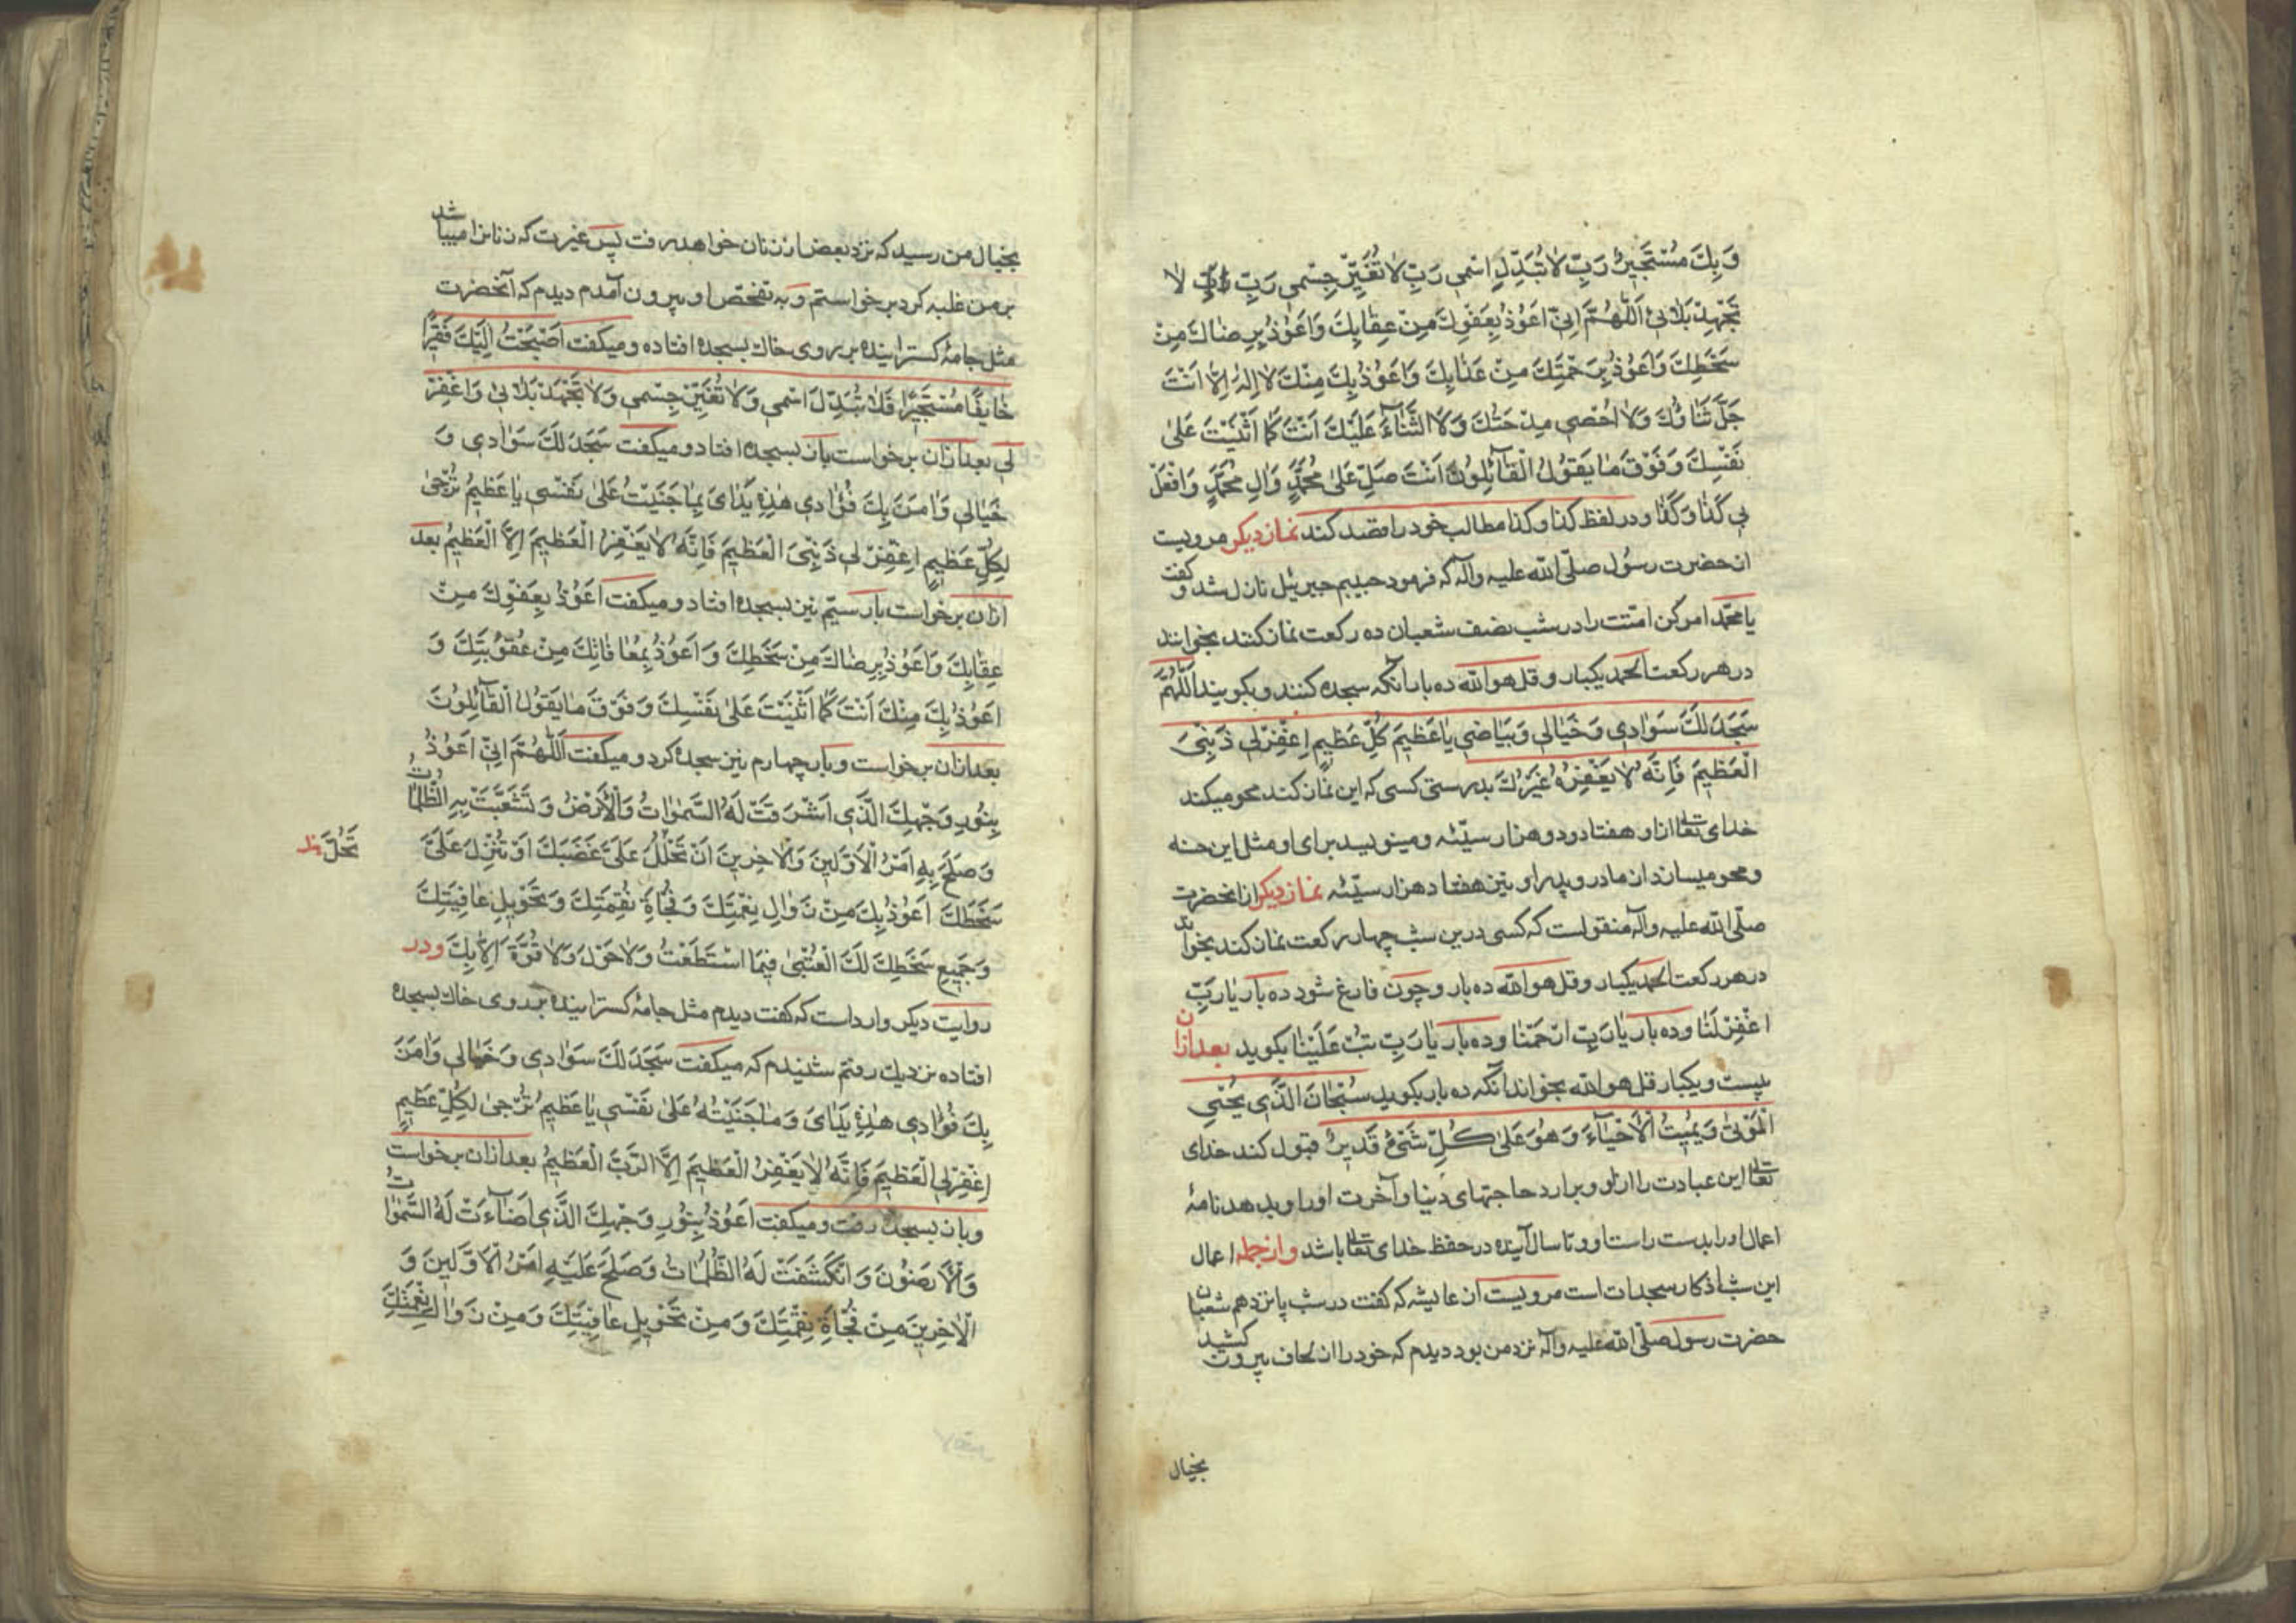 وَبِكَ مُسْتَجِيرٌ رَبِّ لَا تُبَدِّلِ اسْمِي رَبِّ لَا تُغَيِّرْ جِسْمِي رَبِّ لَا
تَجْهَدْ بَلَائِي اَللّٰهُمَّ اِنِّي اَعُوذُ بِعَفْوِكَ مِنْ عِقَابِكَ وَاَعُوذُ بِرِضَاكَ مِنْ
سَخَطِكَ وَاَعُوذُ بِرَحْمَتِكَ مِنْ عَذَابِكَ وَاَعُوذُ بِكَ مِنْكَ لَا اِلٰهَ اِلَّا اَنْتَ
جَلَّ ثَنَاؤُكَ وَلَا اُحْصِي مِدْحَتَكَ وَلَا الثَّنَاءَ عَلَيْكَ اَنْتَ كَمَا اَثْنَيْتَ عَلَى
نَفْسِكَ وَفَوْقَ مَا يَقُولُ الْقَائِلُونَ اَنْتَ صَلِّ عَلَى مُحَمَّدٍ وَاٰلِ مُحَمَّدٍ وَافْعَلْ
بِي كَذَا وَكَذَا ودر لفظ كذا وكذا مطالب خود را قصد كند نماز ديكر مرويست
از حضرت رسول صلّى الله عليه وآله كه فرمود حبيبم جبرئيل نازل شد و كفت
يا محمّد امر كن امّتت را در شب نصف شعبان ده ركعت نماز كنند بخوانند
در هر ركعت الحمد يكبار و قل هو الله ده بار انكه سجده كنند و بكويند اَللّٰهُمَّ
سَجَدَ لَكَ سَوَادِي وَخَيَالِي وَبَيَاضِي يَا عَظِيمَ كُلِّ عَظِيمٍ اِغْفِرْ لِي ذَنْبِيَ
الْعَظِيمَ فَاِنَّهُ لَا يَغْفِرُهُ غَيْرُكَ بدرستى كسى كه اين نماز كند محو ميكند
خداى تعالى از او هفتاد و دو هزار سيّئه و مينويسد براى او مثل اين حسنه
و محو ميسازد از مادر و پدر او نيز هفتاد هزار سيّئه نماز ديكر از انحضرت
صلّى الله عليه وآله منقولست كه كسى درين شب چهار ركعت نماز كند بخواند
در هر ركعت الحمد يكبار و قل هو الله ده بار و چون فارغ شود ده بار يَا رَبِّ
اغْفِرْ لَنَا و ده بار يَا رَبِّ ارْحَمْنَا و ده بار يَا رَبِّ تُبْ عَلَيْنَا بكويد بعد ازان
بيست و يكبار قل هو الله بخواند انكه ده بار بكويد سُبْحَانَ الَّذِي يُحْيِي
الْمَوْتٰى وَيُمِيتُ الْاَحْيَاءَ وَهُوَ عَلٰى كُلِّ شَيْءٍ قَدِيرٌ قبول كند خداى
تعالى اين عبادت را از او و برارد حاجتهاى دنيا و آخرت او را و بدهد نامهٔ
اعمال او را بدست راست او و تا سال آينده در حفظ خداى تعالى باشد و از جمله اعمال
اين شب اذكار سجدات است مرويست از عايشه كه كفت در شب پانزدهم شعبان
حضرت رسول صلّى الله عليه وآله نزد من بود ديدم كه خود را از لحاف بيرون كشيد
بخيال
بخيال من رسيد كه نزد بعض از زنان خواهد رفت پس غيرت كه زنانرا ميباشد
بر من غلبه كرد برخواستم و به تفحّص او بيرون آمدم ديدم كه آنحضرت
مثل جامهٔ كسترانيده بر روى خاك بسجده افتاده و ميكفت اَصْبَحْتُ اِلَيْكَ فَقِيرًا
خَائِفًا مُسْتَجِيرًا فَلَا تُبَدِّلْ اسْمِي وَلَا تُغَيِّرْ جِسْمِي وَلَا تَجْهَدْ بَلَائِي وَاغْفِرْ
لِي بعد ازان برخواست باز بسجده افتاد و ميكفت سَجَدَ لَكَ سَوَادِي وَ
خَيَالِي وَاٰمَنَ بِكَ فُؤَادِي هٰذِهِ يَدَايَ بِمَا جَنَيْتُ عَلٰى نَفْسِي يَا عَظِيمُ تُرْجٰى
لِكُلِّ عَظِيمٍ اِغْفِرْ لِي ذَنْبِيَ الْعَظِيمَ فَاِنَّهُ لَا يَغْفِرُ الْعَظِيمَ اِلَّا الْعَظِيمُ بعد
ازان برخواست بار سيّم نيز بسجده افتاد و ميكفت اَعُوذُ بِعَفْوِكَ مِنْ
عِقَابِكَ وَاَعُوذُ بِرِضَاكَ مِنْ سَخَطِكَ وَاَعُوذُ بِمُعَافَاتِكَ مِنْ عُقُوبَتِكَ وَ
اَعُوذُ بِكَ مِنْكَ اَنْتَ كَمَا اَثْنَيْتَ عَلٰى نَفْسِكَ وَفَوْقَ مَا يَقُولُ الْقَائِلُونَ
بعد ازان برخواست و بار چهارم نيز سجده كرد و ميكفت اَللّٰهُمَّ اِنِّي اَعُوذُ
بِنُورِ وَجْهِكَ الَّذِي اَشْرَقَتْ لَهُ السَّمٰوَاتُ وَالْاَرْضُ وَتَشَعَّبَتْ بِهِ الظُّلُمَاتُ
وَصَلَحَ بِهِ اَمْرُ الْاَوَّلِينَ وَالْاٰخِرِينَ اَنْ تَحْلُلَ عَلَيَّ غَضَبَكَ اَوْ تُنْزِلَ عَلَيَّ
تَحُلَّ ظ
سَخَطَكَ اَعُوذُ بِكَ مِنْ زَوَالِ نِعْمَتِكَ وَفُجَاةِ نَقِمَتِكَ وَتَحْوِيلِ عَافِيَتِكَ
وَجَمِيعِ سَخَطِكَ لَكَ الْعُتْبٰى فِيمَا اسْتَطَعْتُ وَلَا حَوْلَ وَلَا قُوَّةَ اِلَّا بِكَ و در
روايت ديكر وارد است كه كفت ديدم مثل جامهٔ كسترانيده بر روى خاك بسجده
افتاده نزديك رفتم شنيدم كه ميكفت سَجَدَ لَكَ سَوَادِي وَخَيَالِي وَاٰمَنَ
بِكَ فُؤَادِي هٰذِهِ يَدَايَ وَمَا جَنَيْتُهُ عَلٰى نَفْسِي يَا عَظِيمُ تُرْجٰى لِكُلِّ عَظِيمٍ
اِغْفِرْ لِيَ الْعَظِيمَ فَاِنَّهُ لَا يَغْفِرُ الْعَظِيمَ اِلَّا الرَّبُّ الْعَظِيمُ بعد ازان برخواست
و باز بسجده رفت و ميكفت اَعُوذُ بِنُورِ وَجْهِكَ الَّذِي اَضَاءَتْ لَهُ السَّمٰوَاتُ
وَالْاَرَضُونَ وَانْكَشَفَتْ لَهُ الظُّلُمَاتُ وَصَلَحَ عَلَيْهِ اَمْرُ الْاَوَّلِينَ وَ
الْاٰخِرِينَ مِنْ فُجْاَةِ نَقِمَتِكَ وَمِنْ تَحْوِيلِ عَافِيَتِكَ وَمِنْ زَوَالِ نِعْمَتِكَ